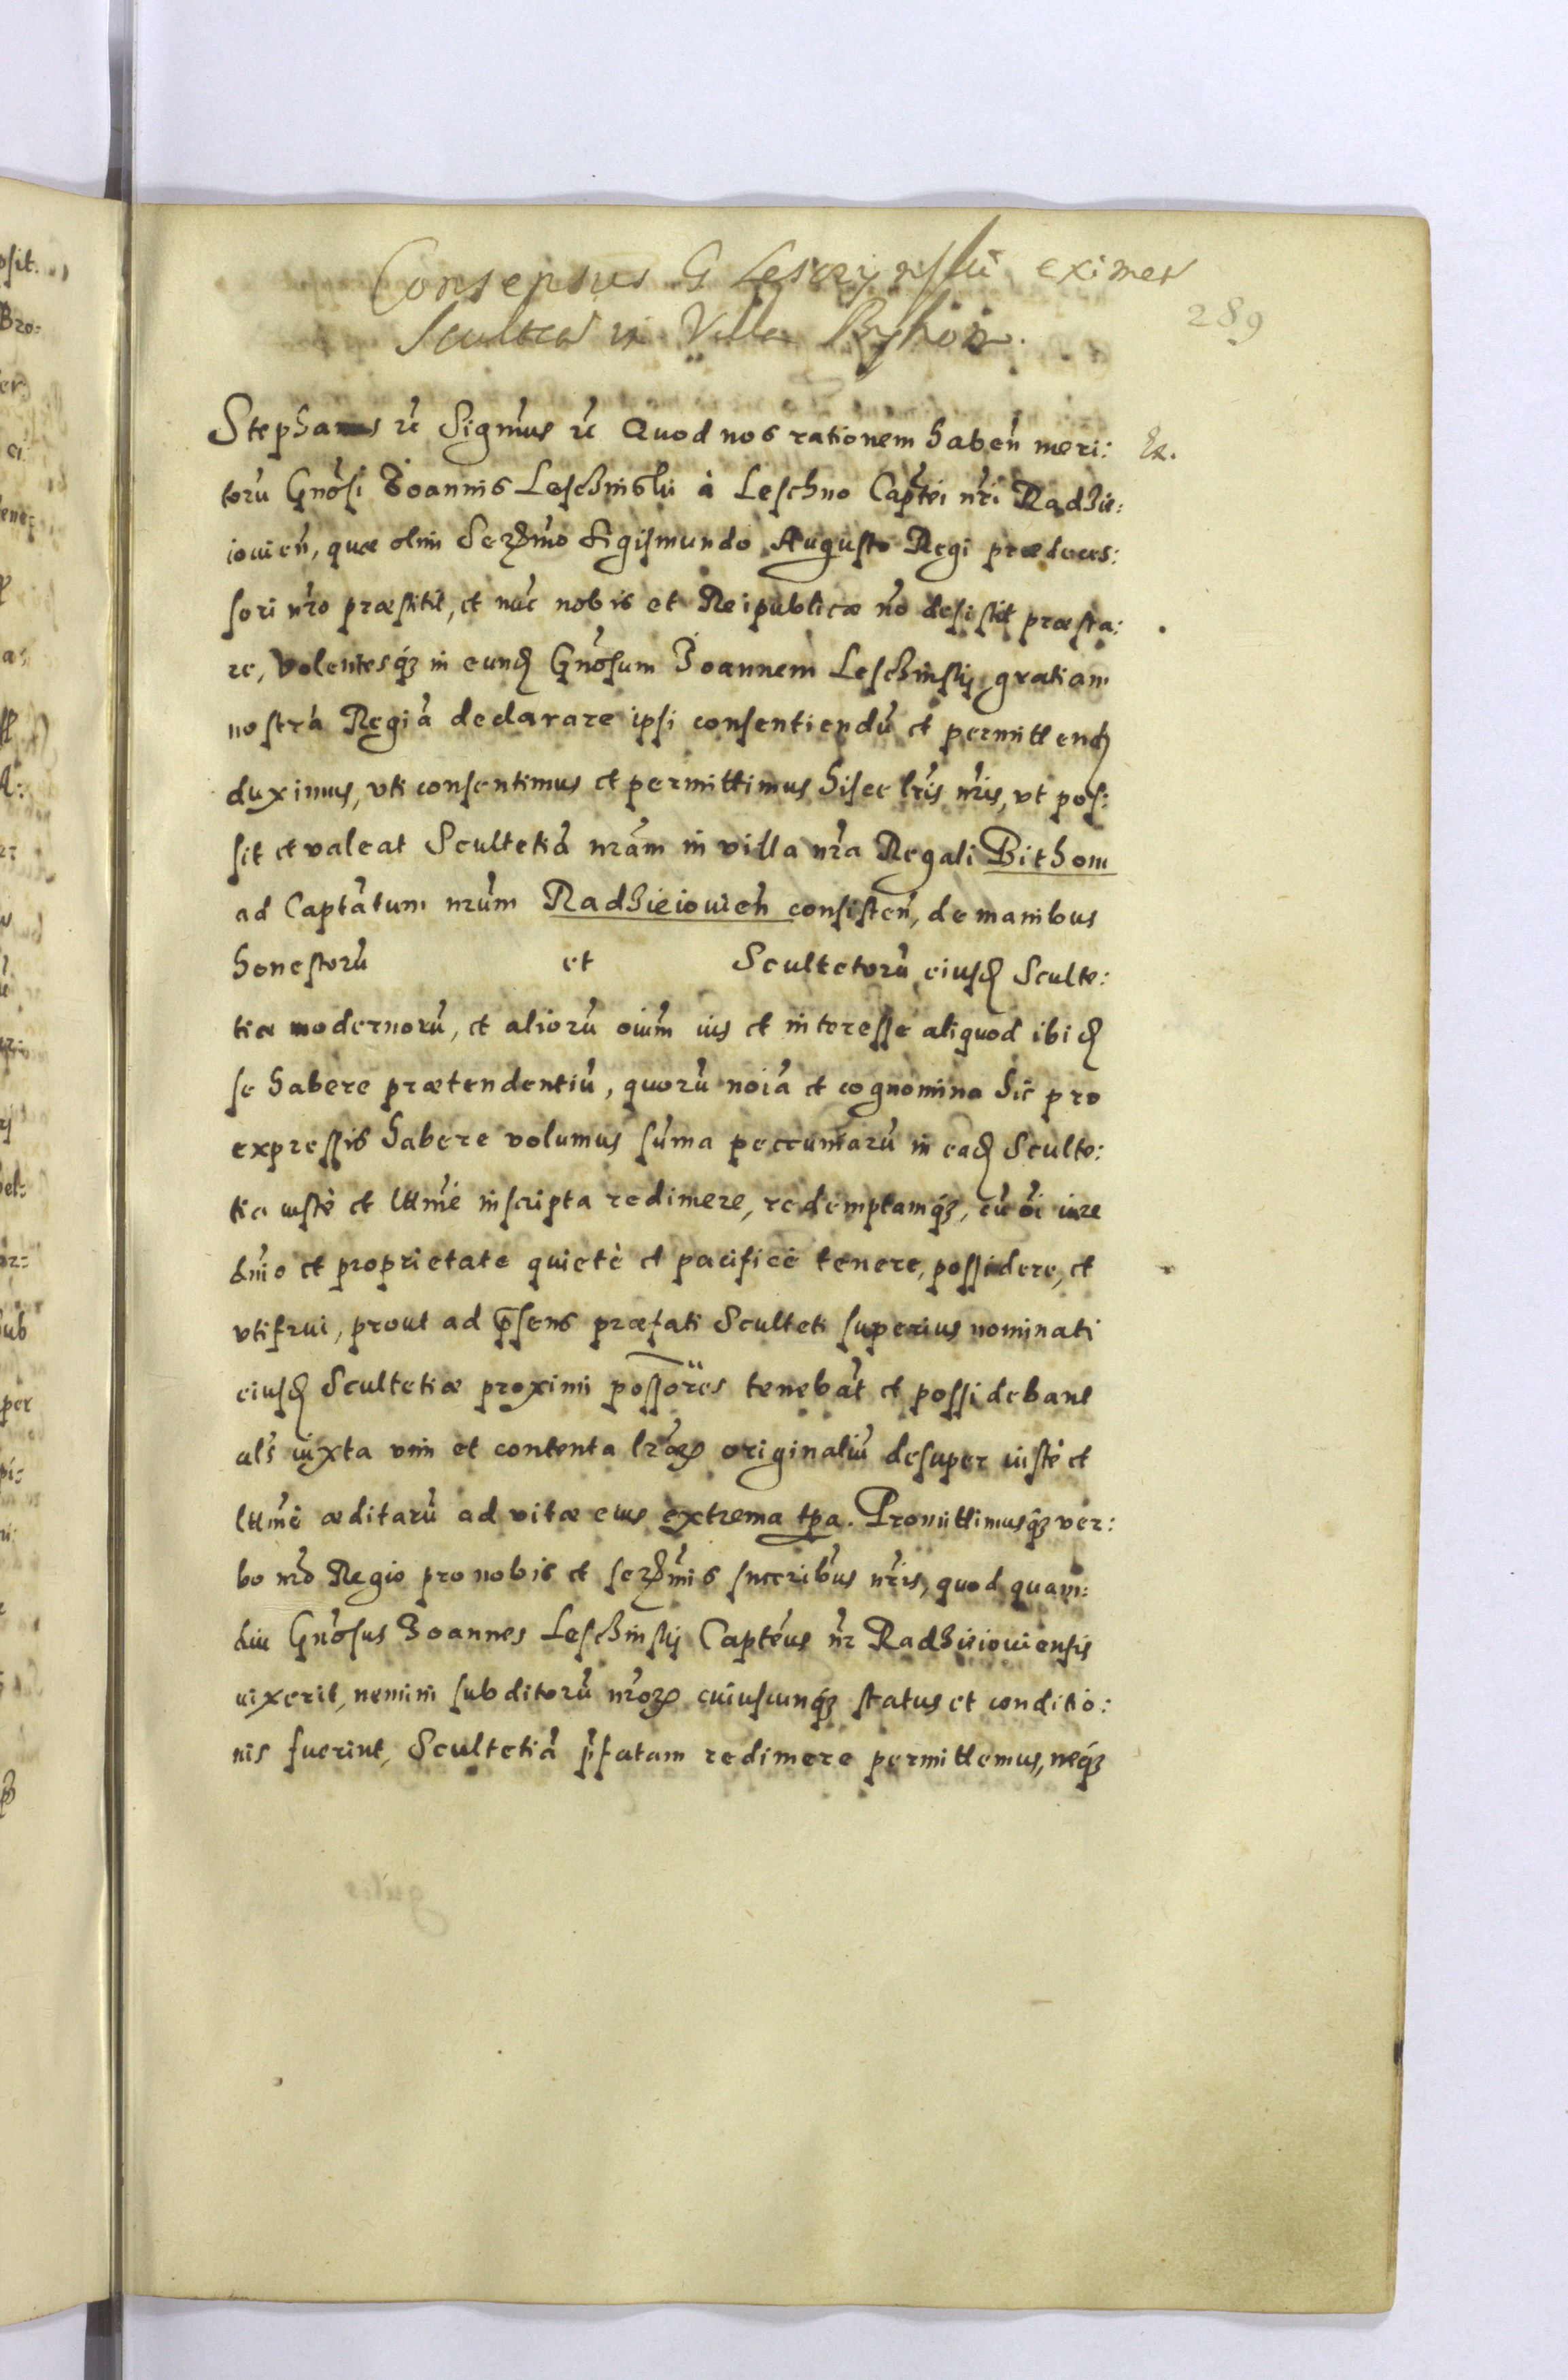 Consensus G Lesczynskii eximen
Scultet in Villa Bythom.
289
Stephanus etc Significamus etc Quod nos rationem haben meri:
Ex.
toru Gnosi Joannis Leschinskii à Leschno Captei nri Radzie:
iovien, quæ olim Sermo Sigismundo Augusto Regi prædeces:
sori nro præstitit, et nuc nobis et Reipublicæ no desistit præsta:
re, Volentesq in eund Gnosum Joannem Leschinskij gratiam
nostrá Regiá declarare ipsi consentiendú et permittend
duximus, uti consentimus et permittimus hisce lris nris, ut pos:
sit et valeat Scultetiá nram in villa nra Regali Bithom
ad Captatum nrum Radzieiovien consisten, de manibus
honestorú et Scultetorú eiusd Sculte:
tiæ modernorú, et aliorú oium ius et interesse aliquod ibid
se habere prætendentiú, quorú noia et cognomina hic pro
expressis habere volumus suma peccuniarú in ead Sculte:
tia iustè et lttme inscripta redimere, redemptamq, cú oi iure
dnio et proprietate quietè et pacificè tenere, possidere, et
utifrui, prout ad psens præfati Sculteti superius nominati
eiusd Scultetiæ proximi possores tenebát et possidebant
als iuxta vim et contenta lrar originaliú desuper iustè et
lttme æditarú ad vitæ eius extrema tpa. Promittimusq ver:
bo nro Regio pro nobis et sermis succribus nris, quod quam:
diu Gnosus Joannes Leschinskij Capteus nr Radzieioviensis
vixerit, nemini subditorú nror cuiuscunq status et conditio:
nis fuerint, Scultetiá pfatam redimere permittemus, neq